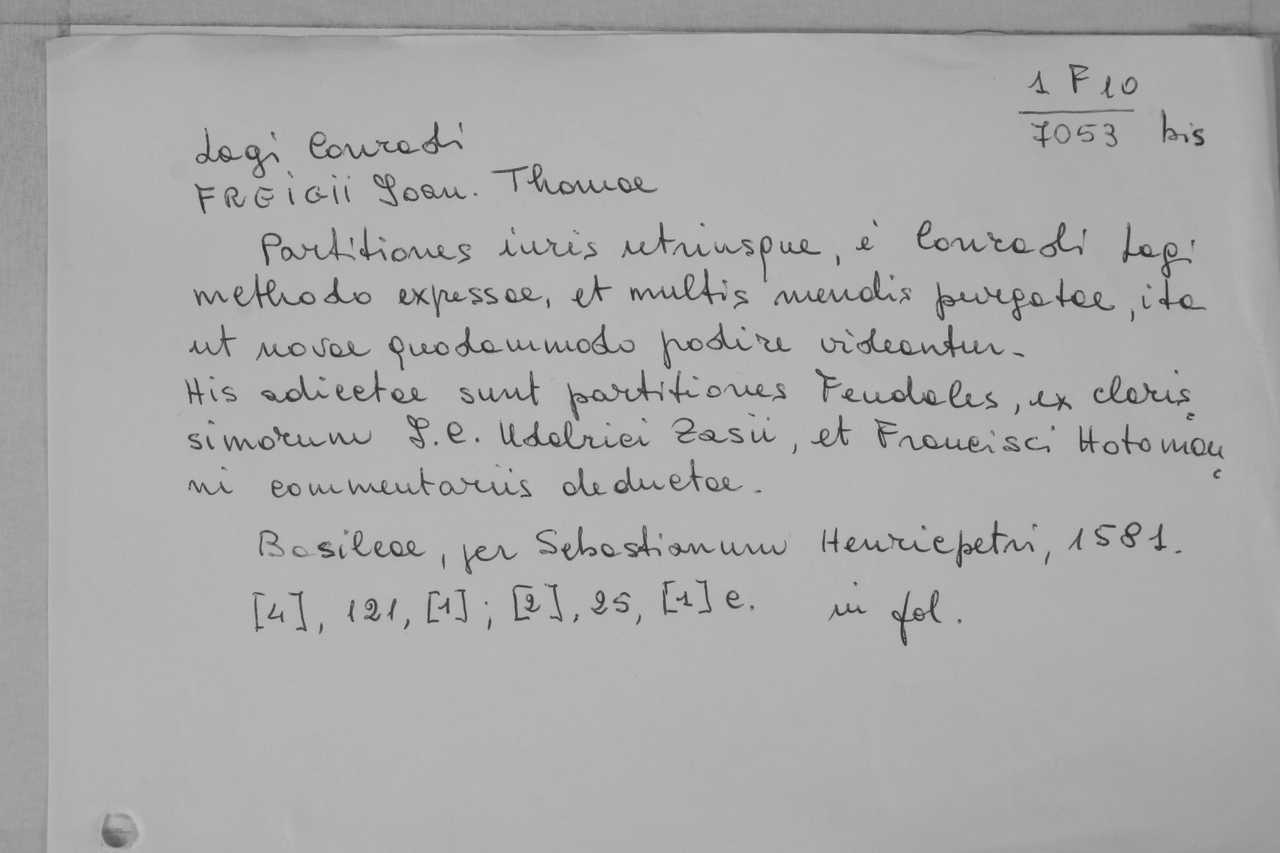 1 F 10
7053 bis
Lagi Conradi
FREIGII Joan. Thomae
Partitiones iuris utriusque, è Conradi Lagi
methodo expessae, et multis mendis purgatae, ita
ut novae quodammodo podire videantur.
His adiectae sunt partitiones Feudales, ex claris=
simorum J.C. Udalrici Zasii, et Francisci Hotoman=
ni commentariis deductae.
Basileae, per Sebastianum Henricpetri, 1581.
[4], 121, [1]; [2], 25, [1] c. in fol.